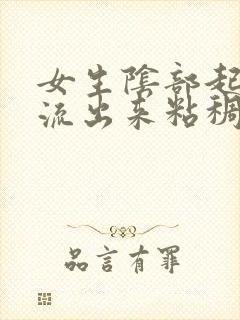 女生陰部起
流出来粘稠
品言有罪